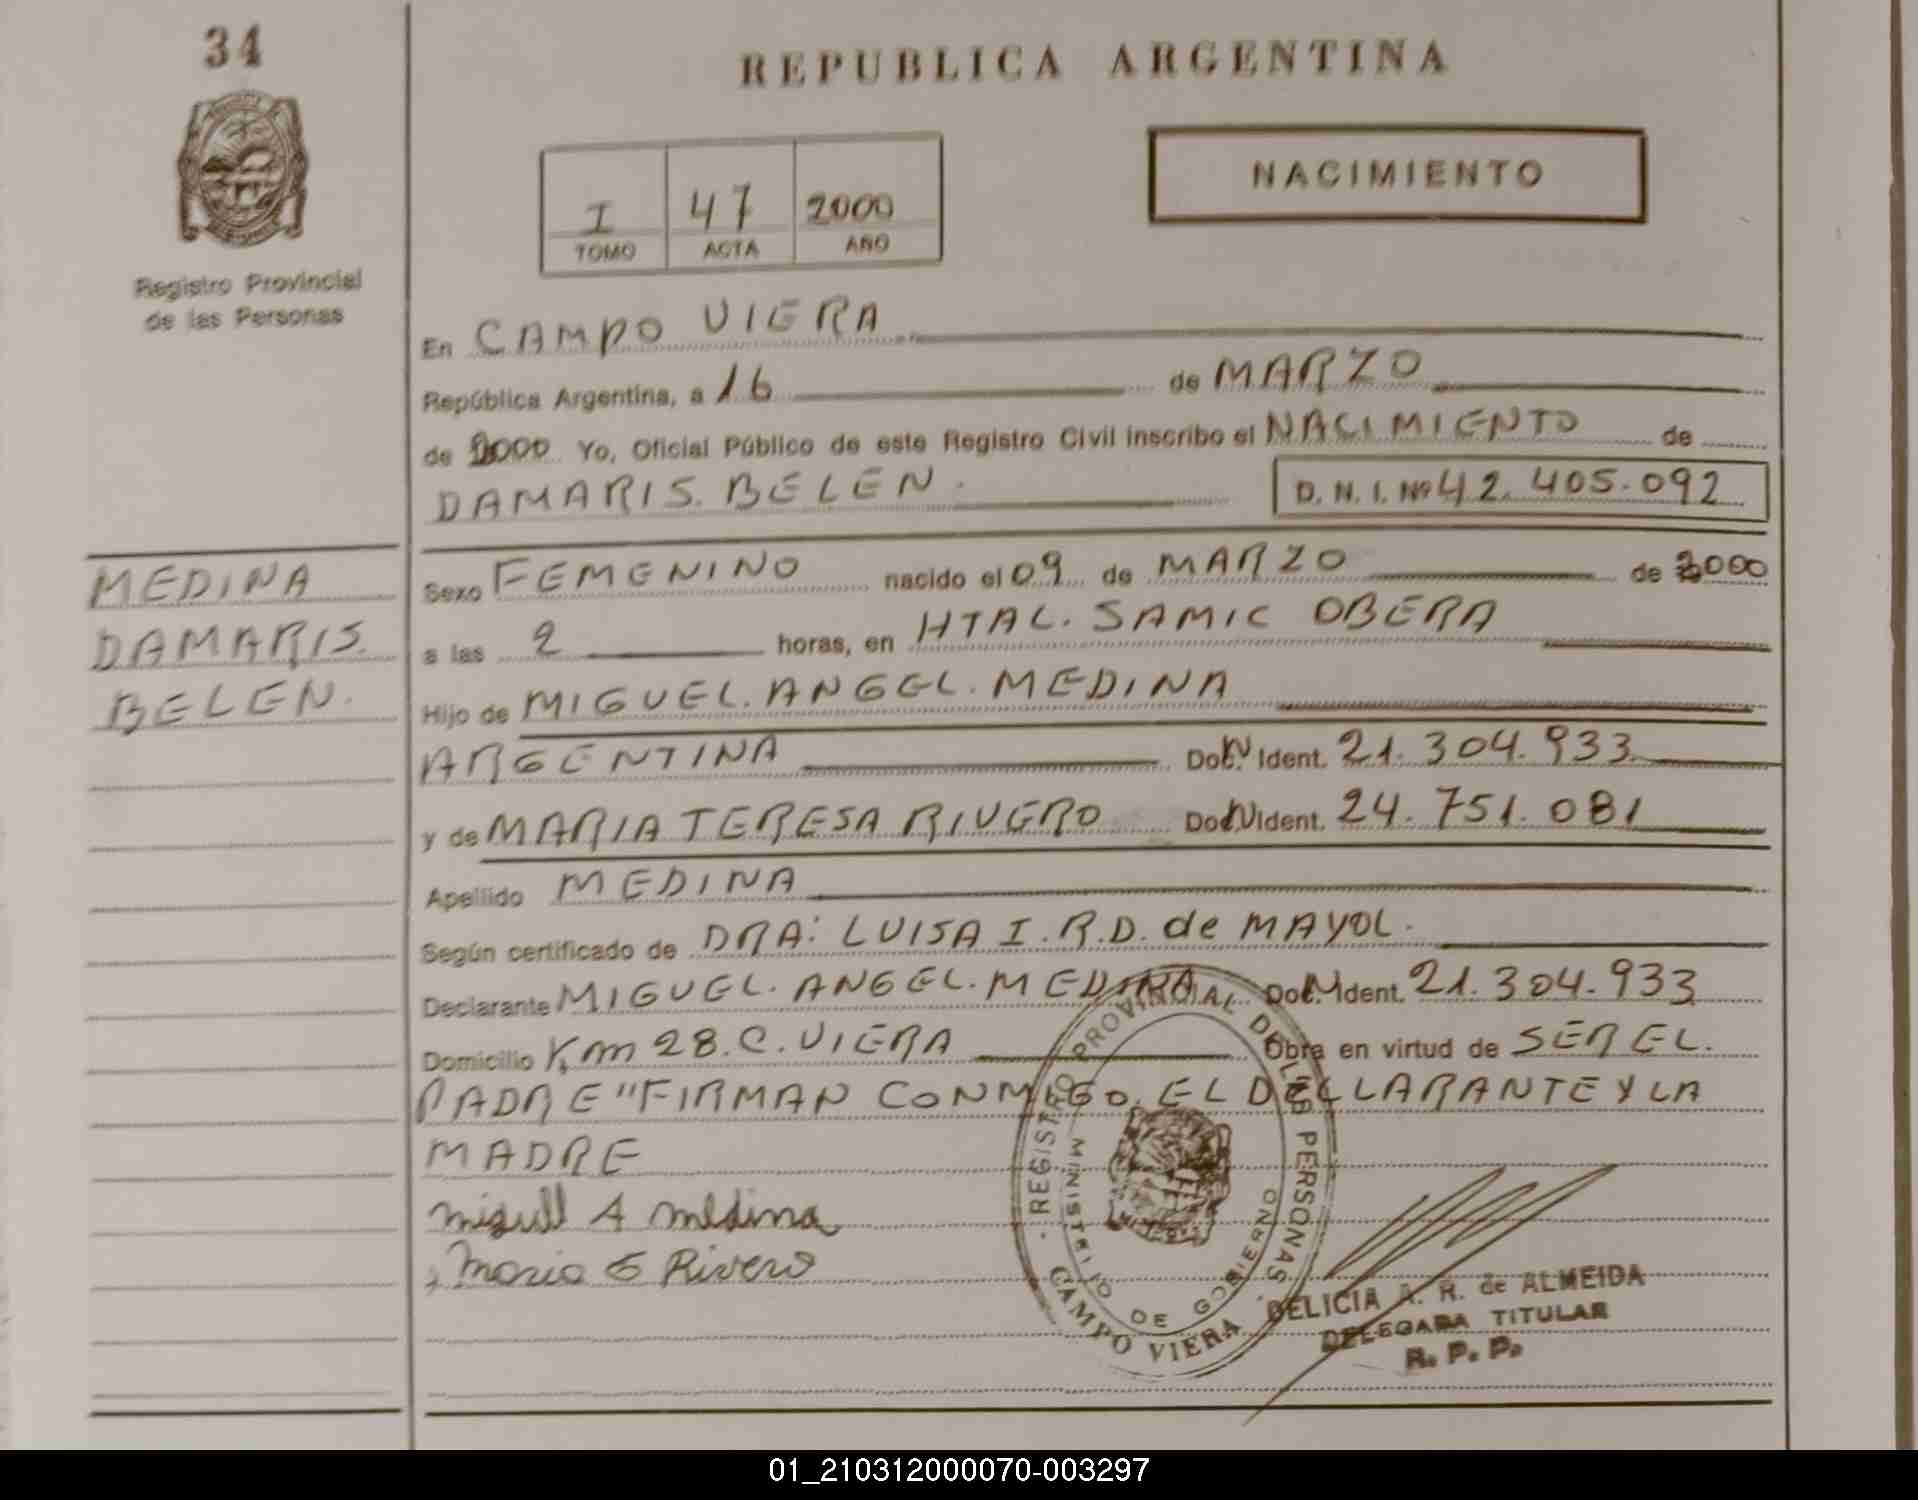 34
REPUBLICA ARGENTINA
NACIMIENTO
I 47 2000
TOMO ACTA AÑO
Registro Provincial
de las Personas
En CAMPO VIERA
República Argentina, a 16 de MARZO
de 2000 Yo, Oficial Público de este Registro Civil inscribo el NACIMIENTO de
DAMARIS. BELEN. D. N. I. Nº 42. 405. 092
MEDINA
DAMARIS.
BELEN.
Sexo FEMENINO nacido el 09 de MARZO de 2000
a las 2 horas, en HTAL. SAMIC OBERA
Hijo de MIGUEL. ANGEL. MEDINA
ARGENTINA Doc. N Ident. 21. 304. 933
y de MARIA TERESA RIVERO Doc. N Ident. 24. 751. 081
Apellido MEDINA
Según certificado de DRA: LUISA I. R. D. de MAYOL.
Declarante MIGUEL. ANGEL. MEDINA Doc. N Ident. 21. 304. 933
Domicilio Km 28. C. VIERA Obra en virtud de SER EL.
PADRE "FIRMAN CONMIGO. EL DECLARANTE Y LA
MADRE
Miguel A Medina
Maria Rivero
REGISTRO PROVINCIAL DE LAS PERSONAS
MINISTERIO DE GOBIERNO
CAMPO VIERA
DELICIA A. R. de ALMEIDA
DELEGADA TITULAR
R. P. P.
01_210312000070-003297